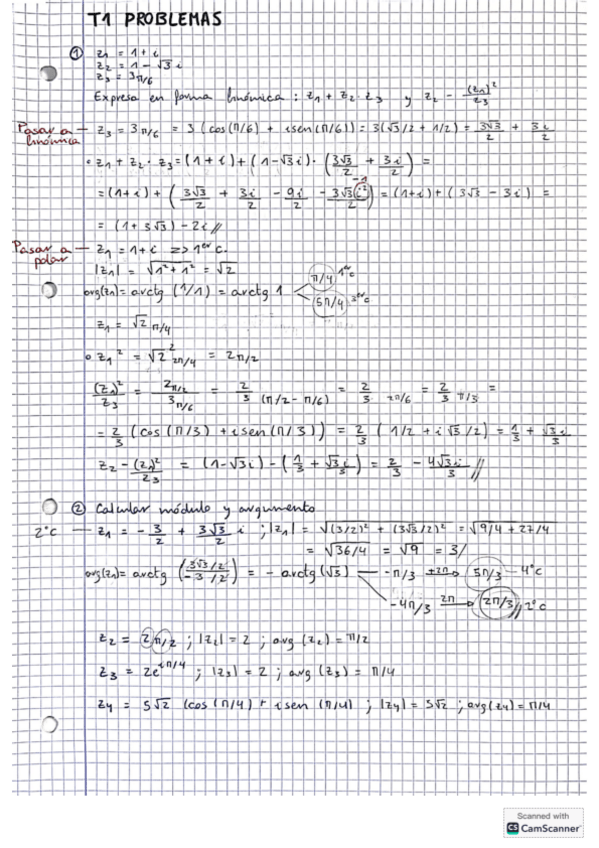 T1 PROBLEMAS
① z1 = 1+i
z2 = 1 - √3 i
z3 = 3π/6
Expresa en forma binómica: z1 + z2 · z3 y z2 - (z1)²/z3
Pasar a binómica — z3 = 3π/6 = 3 (cos(π/6) + isen(π/6)) = 3(√3/2 + 1/2) = 3√3/2 + 3i/2
• z1 + z2 · z3 = (1+i) + (1-√3i) · (3√3/2 + 3i/2) =
= (1+i) + (3√3/2 + 3i/2 - 9i/2 - 3√3 i²/2) -1 = (1+i) + (3√3 - 3i) =
= (1+3√3) - 2i //
Pasar a polar — z1 = 1+i => 1er c.
|z1| = √1²+1² = √2
arg(z1) = arctg (1/1) = arctg 1 π/4 1er c
5π/4 3er c
z1 = √2 π/4
• z1² = √2² 2π/4 = 2π/2
(z1)²/z3 = 2π/2 / 3π/6 = 2/3 (π/2 - π/6) = 2/3 2π/6 = 2/3 π/3 =
= 2/3 (cos (π/3) + isen (π/3)) = 2/3 (1/2 + i √3/2) = 1/3 + √3i/3
z2 - (z1)²/z3 = (1-√3i) - (1/3 + √3i/3) = 2/3 - 4√3i/3 //
② Calcular módulo y argumento
2ºc — z1 = -3/2 + 3√3/2 i ; |z1| = √(3/2)² + (3√3/2)² = √9/4 + 27/4
= √36/4 = √9 = 3/
arg(z1) = arctg (3√3/2 / -3/2) = - arctg (√3) -π/3 +2π → 5π/3 — 4ºc
-4π/3 2π → 2π/3 // 2ºc
z2 = 2π/2 ; |z2| = 2 ; arg (z2) = π/2
z3 = 2e^iπ/4 ; |z3| = 2 ; arg (z3) = π/4
z4 = 5√2 (cos (π/4) + isen (π/4) ; |z4| = 5√2 ; arg(z4) = π/4
Scanned with
CS CamScanner